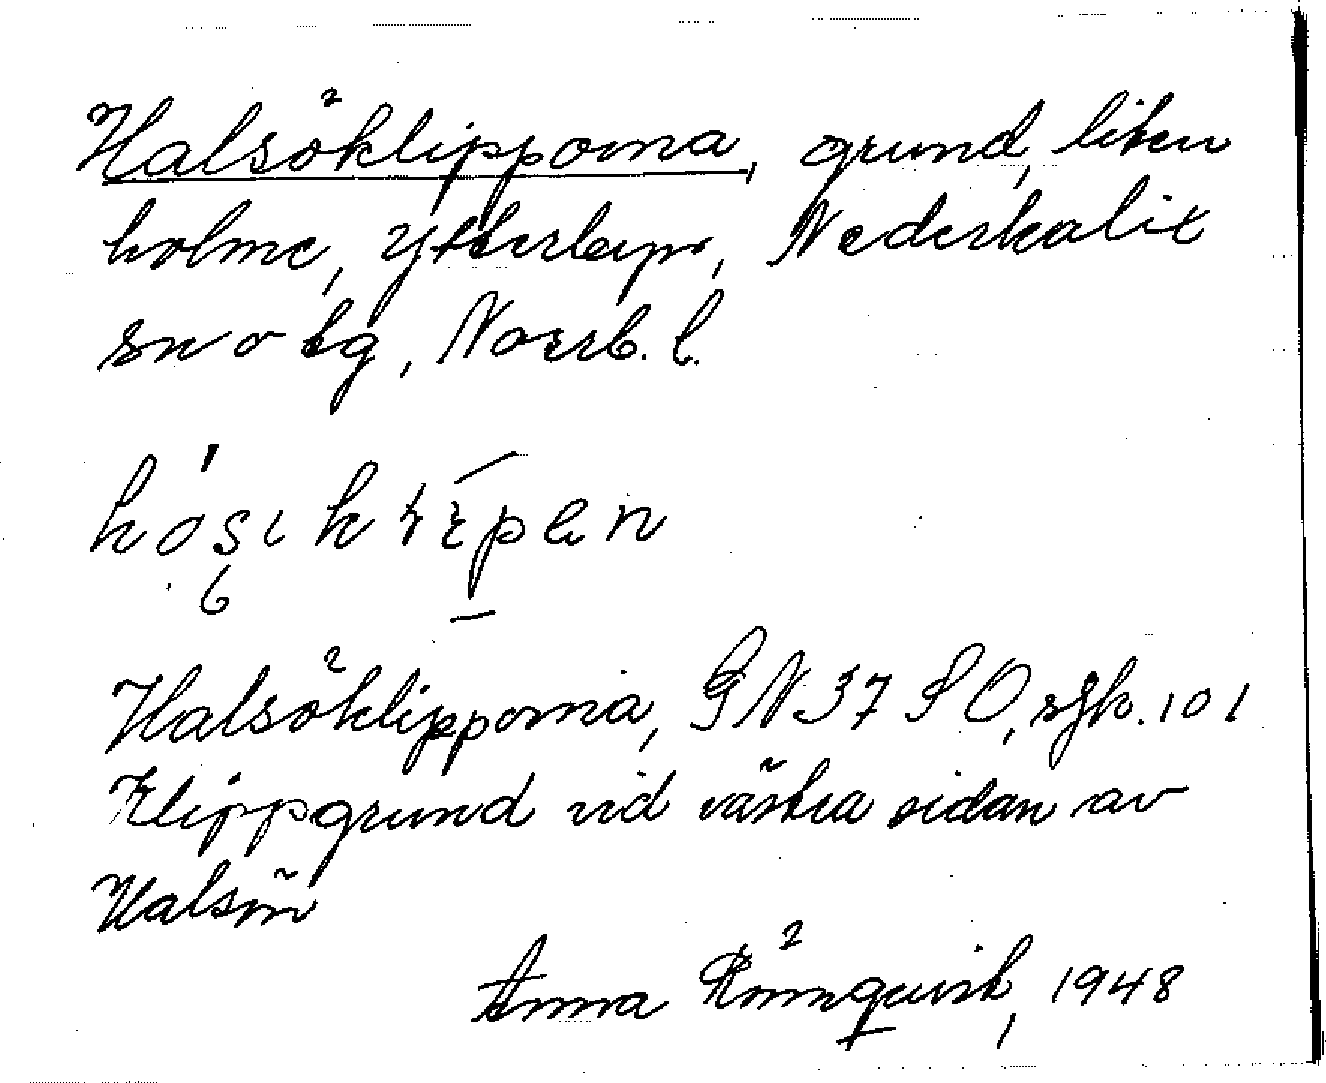 Halsöklipporna, grund, liten
holme, Ytterbyn, Nederkalix
sn o tg, Norrb. l.
Halsöklipporna, GN 37 SO, rfk. 101
Klippgrund vid västra sidan av
Halsön
Anna Rönnquist, 1948